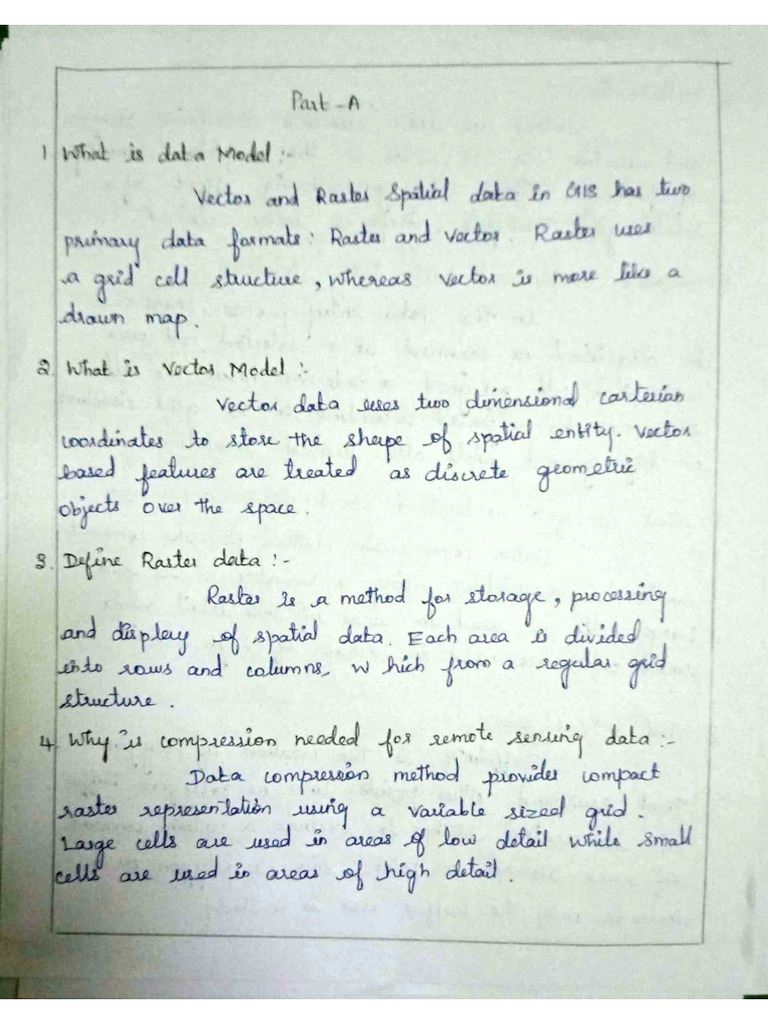 Part - A
1 What is data Model :-
Vector and Raster Spatial data in GIS has two
primary data formats: Raster and Vector. Raster uses
a grid cell structure, whereas vector is more like a
drawn map.
2. What is Vector Model :-
Vector data uses two dimensional carterian
coordinates to store the shape of spatial entity. Vector
based features are treated as discrete geometric
objects over the space.
3. Define Raster data :-
Raster is a method for storage, processing
and display of spatial data. Each area is divided
into rows and columns, w hich from a regular grid
structure.
4. Why is compression needed for remote sensing data :-
Data compression method provides compact
raster representation using a variable sized grid.
Large cells are used in areas of low detail while small
cells are used in areas of high detail.